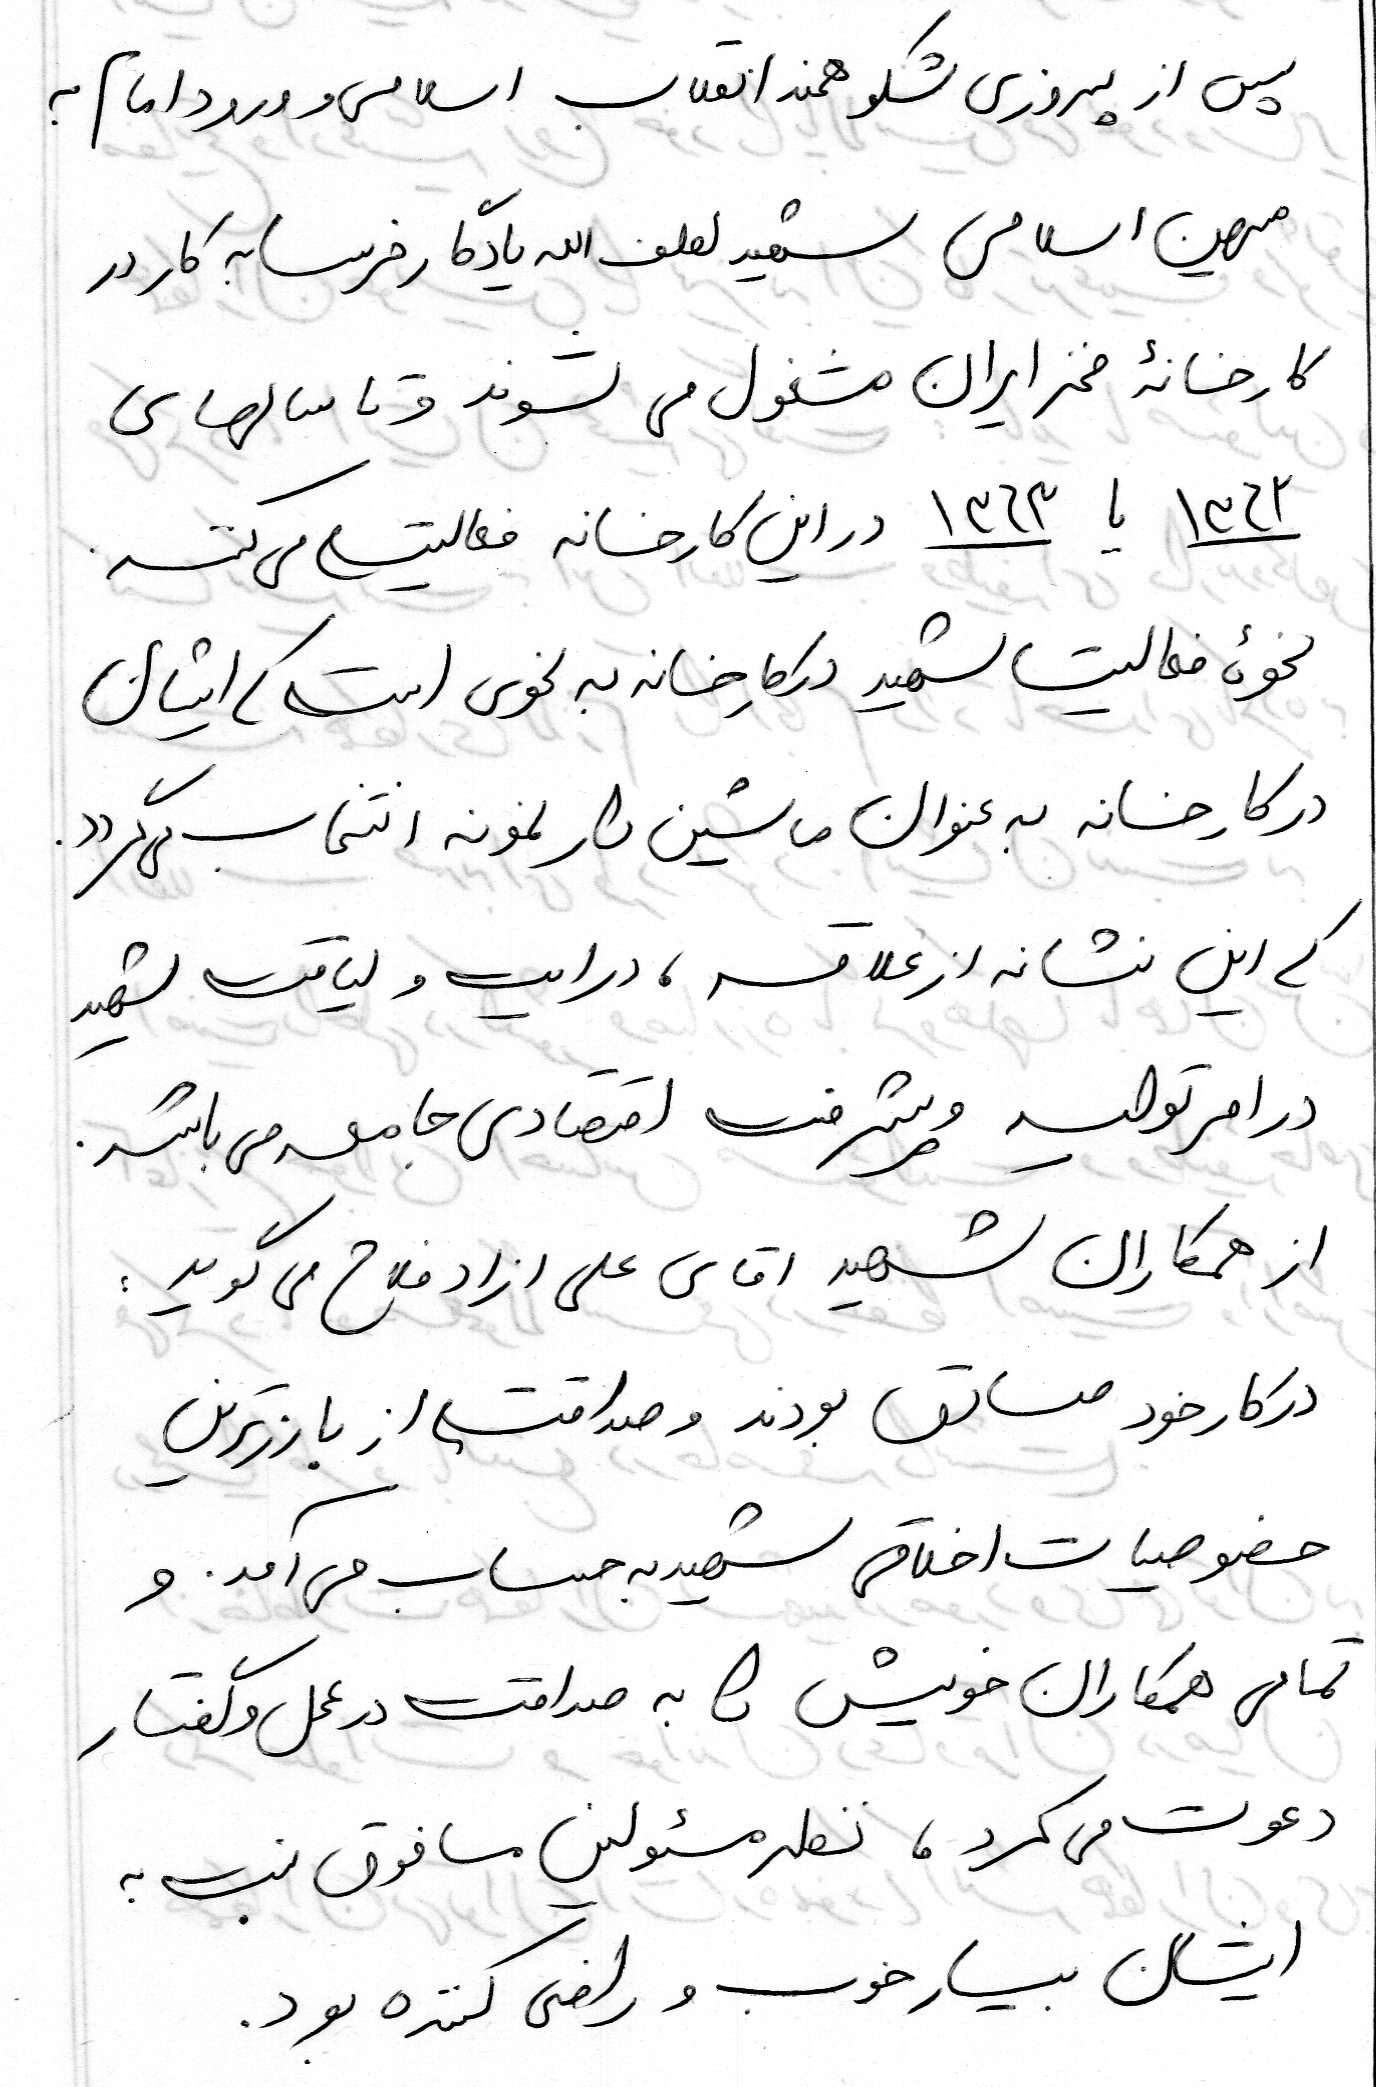 پس از پیروزی شکوهمند انقلاب اسلامی و ورود امام به
میهن اسلامی شهید لطف الله یادگار فرسا به کار در
کارخانهٔ فخر ایران مشغول می شوند و تا سالهای
۱۳۶۲ یا ۱۳۶۳ در این کارخانه فعالیت می کنند.
نحوهٔ فعالیت شهید در کارخانه به نحوی است که ایشان
در کارخانه به عنوان ماشین کار نمونه انتخاب می گردد.
که این نشانه از علاقه ، درایت و لیاقت شهید
در امر تولید و پیشرفت اقتصادی جامعه می باشد.
از همکاران شهید اقای علی ازاد فلاح می گوید :
در کار خود صادق بودند و صداقت از بارزترین
خصوصیات اخلاقی شهید به حساب می آمد. و
تمامی همکاران خویش را به صداقت در عمل و گفتار
دعوت می کرد ، نظر مسئولین مافوق نسبت به
ایشان بسیار خوب و راضی کننده بود.